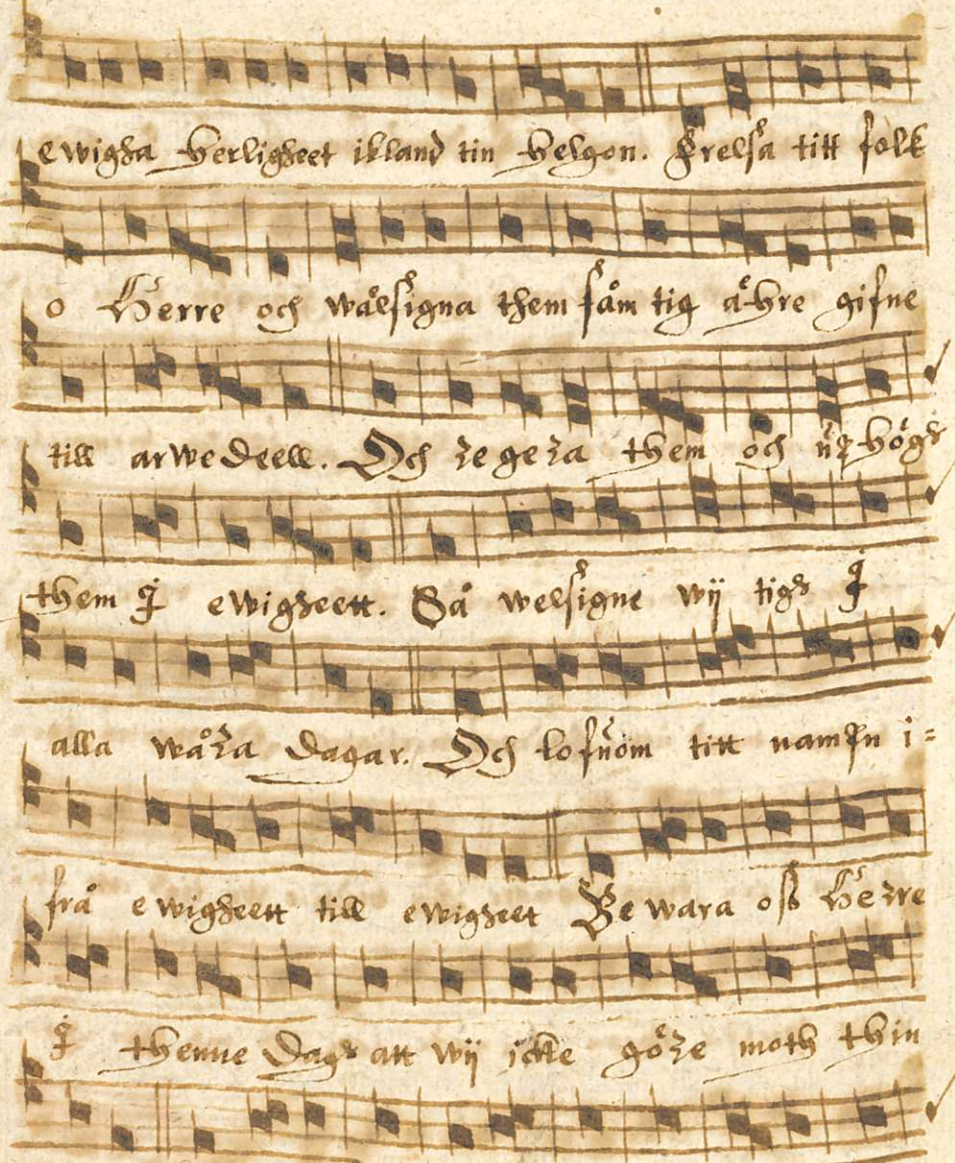 ewigha herligheet ibland tin helgon. Frelsa titt folk
o Herre och wälsigna them såm tig ähre gifne
till arwedeell. Och regera them och uphögh
them I ewigheett. Så welsigne wij tigh I
alla wåra dagar. Och lofuom titt nampn i=
frå ewigheett till ewigheet Bewara oss Herre
I thenne Dagh att wij icke göre moth thin